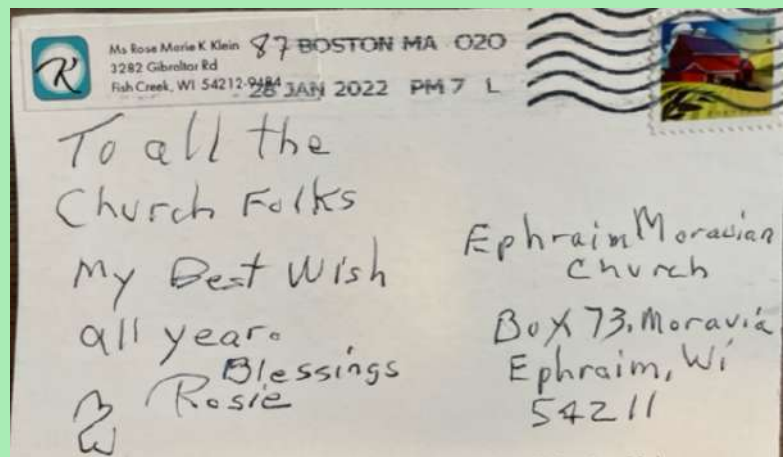 K
Ms Rose Marie K Klein
3282 Gibraltar Rd
Fish Creek, WI 54212-9484
87 BOSTON MA 020
28 JAN 2022 PM 7 L
To all the
Church Folks
My Best Wish
all year.
Blessings
Rosie
Ephraim Moravian
Church
Box 73, Moravia
Ephraim, Wi
54211